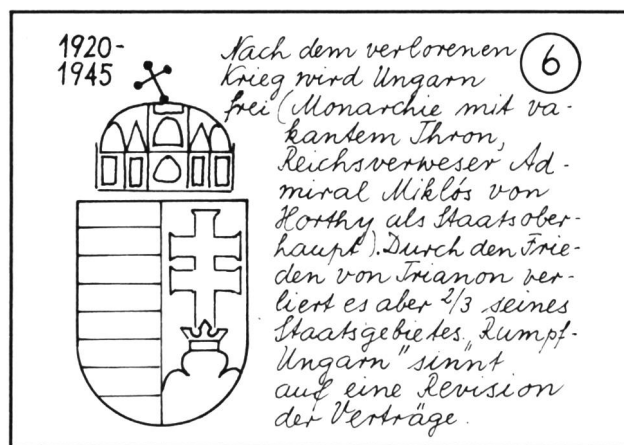 1920-
1945
Nach dem verlorenen
Krieg wird Ungarn
frei (Monarchie mit va-
kantem Thron,
Reichsverweser Ad-
miral Miklós von
Horthy als Staatsober-
haupt). Durch den Frie-
den von Trianon ver-
liert es aber 2/3 seines
Staatsgebietes. „Rumpf-
Ungarn" sinnt
auf eine Revision
der Verträge.
6